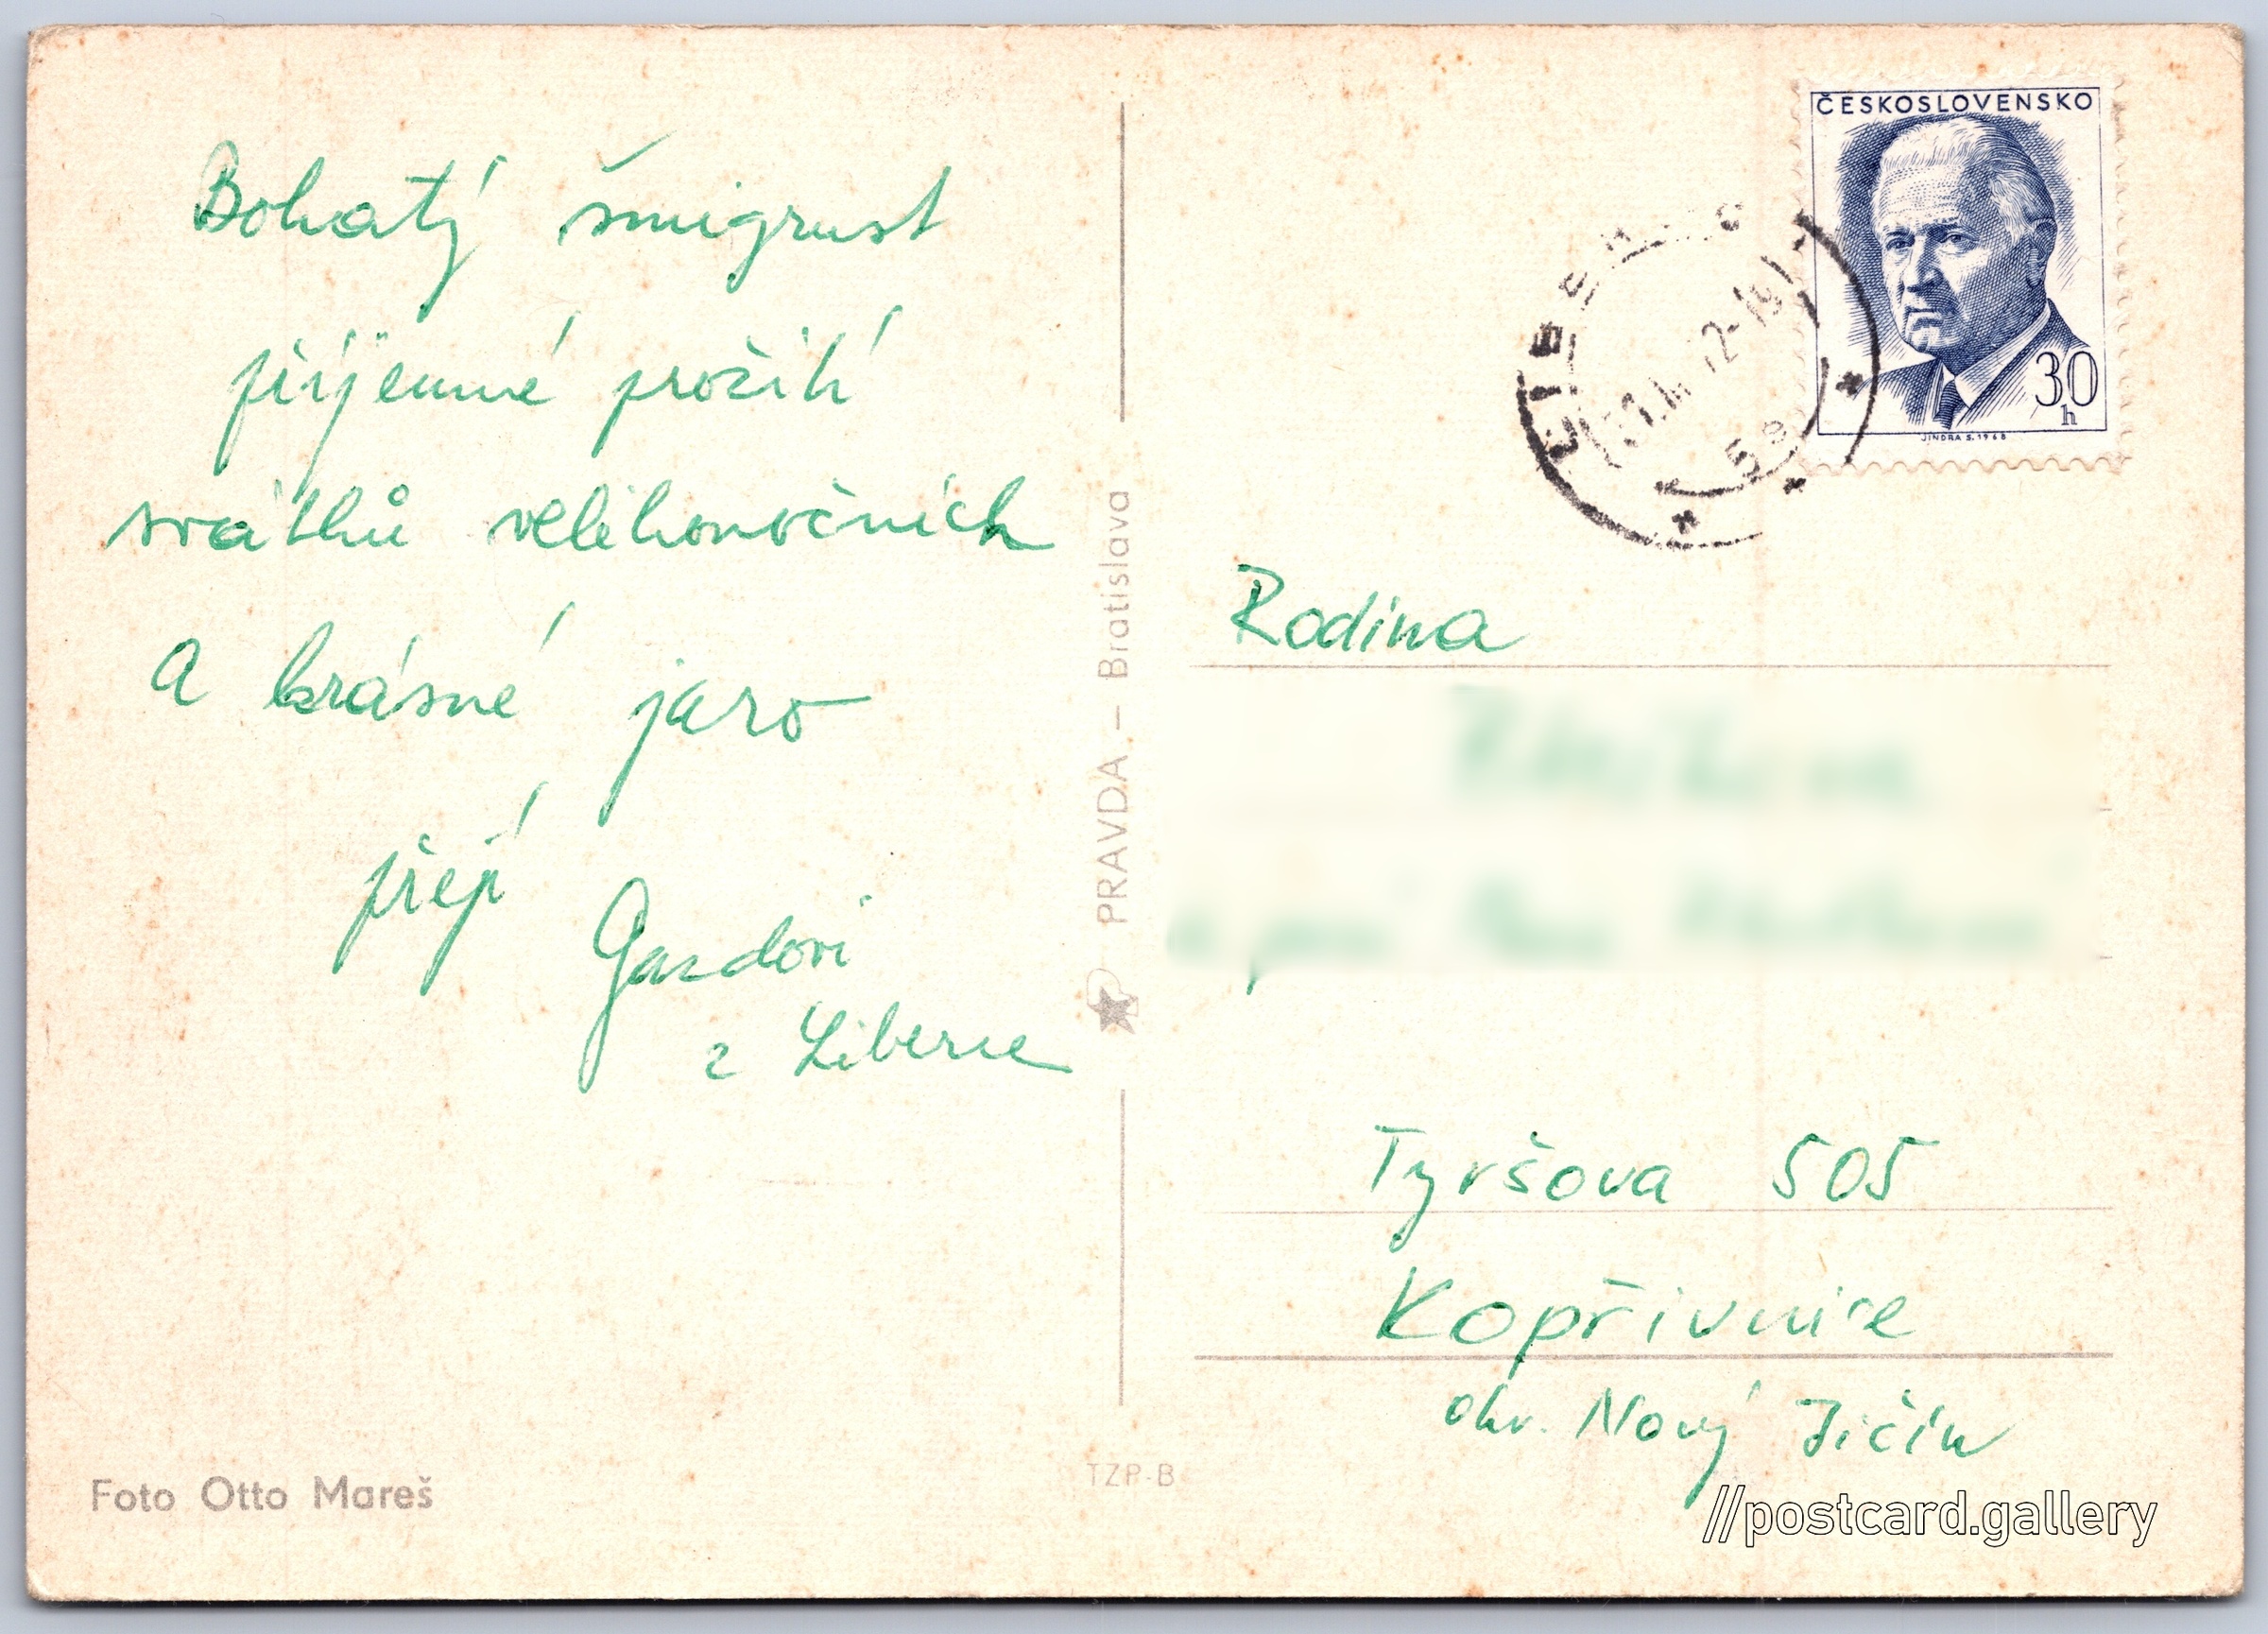 Bohatý šmigrust
příjemné prožití
svátků velikonočních
a krásné jaro
přejí
Gazdovi
z Liberce
Foto Otto Mareš
PRAVDA – Bratislava
TZP-B
ČESKOSLOVENSKO
30
h
JINDRA S. 1968
Rodina
Tyršova 505
Kopřivnice
okr. Nový Jičín
//postcard.gallery